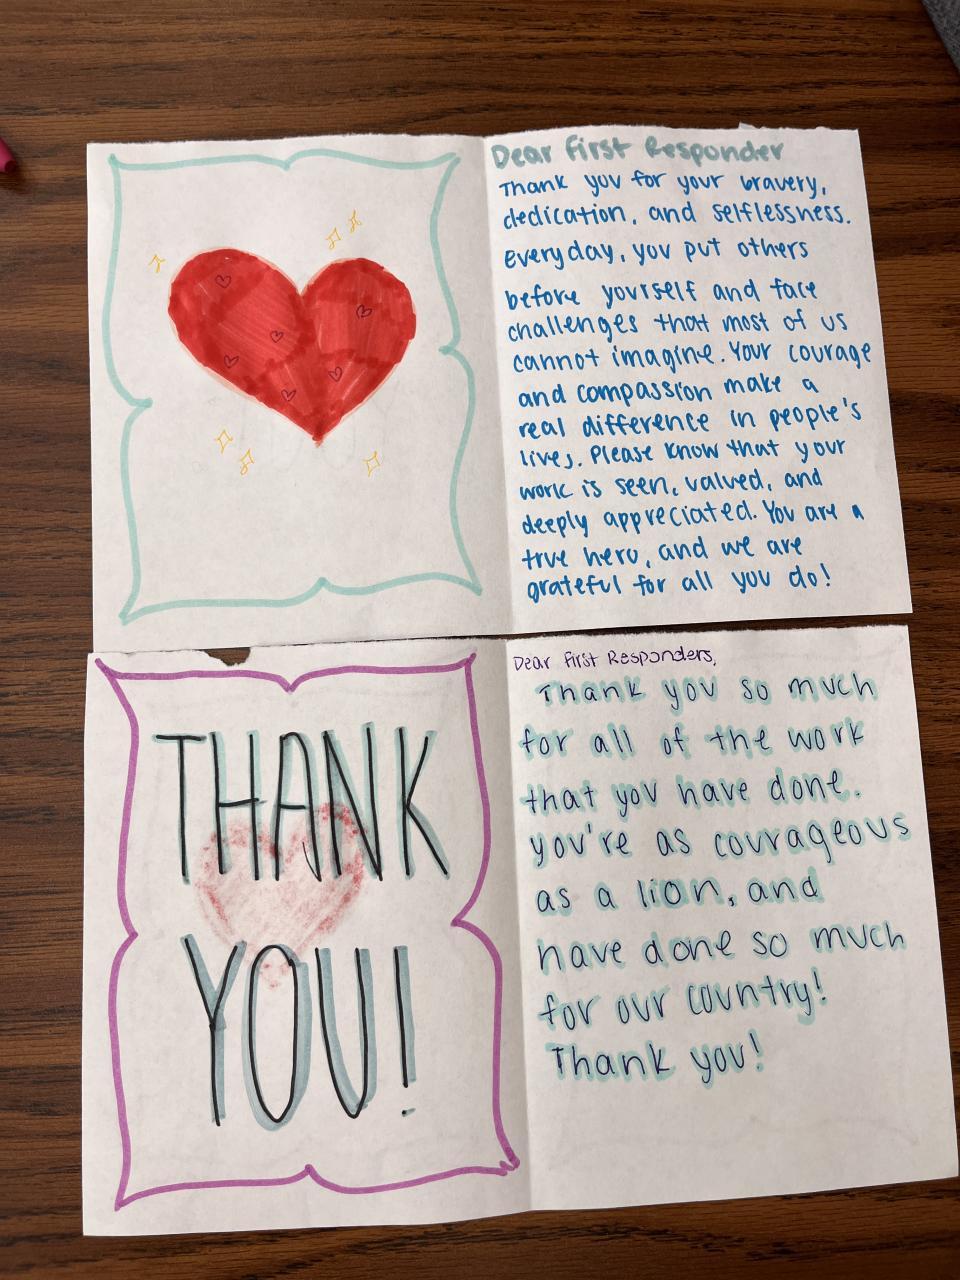 Dear First Responder
Thank you for your bravery,
dedication, and selflessness.
Everyday, you put others
before yourself and face
challenges that most of us
cannot imagine. Your courage
and compassion make a
real difference in people's
lives. Please know that your
work is seen, valued, and
deeply appreciated. You are a
true hero, and we are
grateful for all you do!
THANK
YOU!
Dear First Responders,
Thank you so much
for all of the work
that you have done.
you're as courageous
as a lion, and
have done so much
for our country!
Thank you!